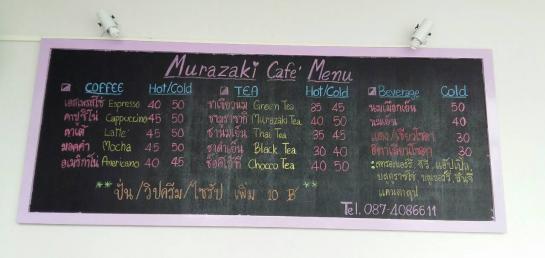 Murazaki Cafe' Menu
COFFEE Hot/Cold TEA Hot/Cold Beverage Cold
เอสเพรสโซ่ Espresso 40 50 ชาเขียวนม Green Tea 35 45 นมเย็น 50
คาปูชิโน่ Cappuccino 45 50 ชามูราซากิ Murazaki Tea 40 50 นมเย็น 40
ลาเต้ Latte' 45 50 ชานมเย็น Thai Tea 35 45 แดง/เขียวโซดา 30
มอคค่า Mocha 45 50 ชาดำเย็น Black Tea 30 40 อิตาเลี่ยนโซดา 30
อเมริกาโน่ Americano 40 45 ช็อคโก้ที Chocco Tea 40 50 สตรอเบอร์รี่, กีวี่, แอ๊ปเปิ้ล
** ปั่น/วิปครีม/ไซรัป เพิ่ม 10 ฿ **
Tel. 087-4086611